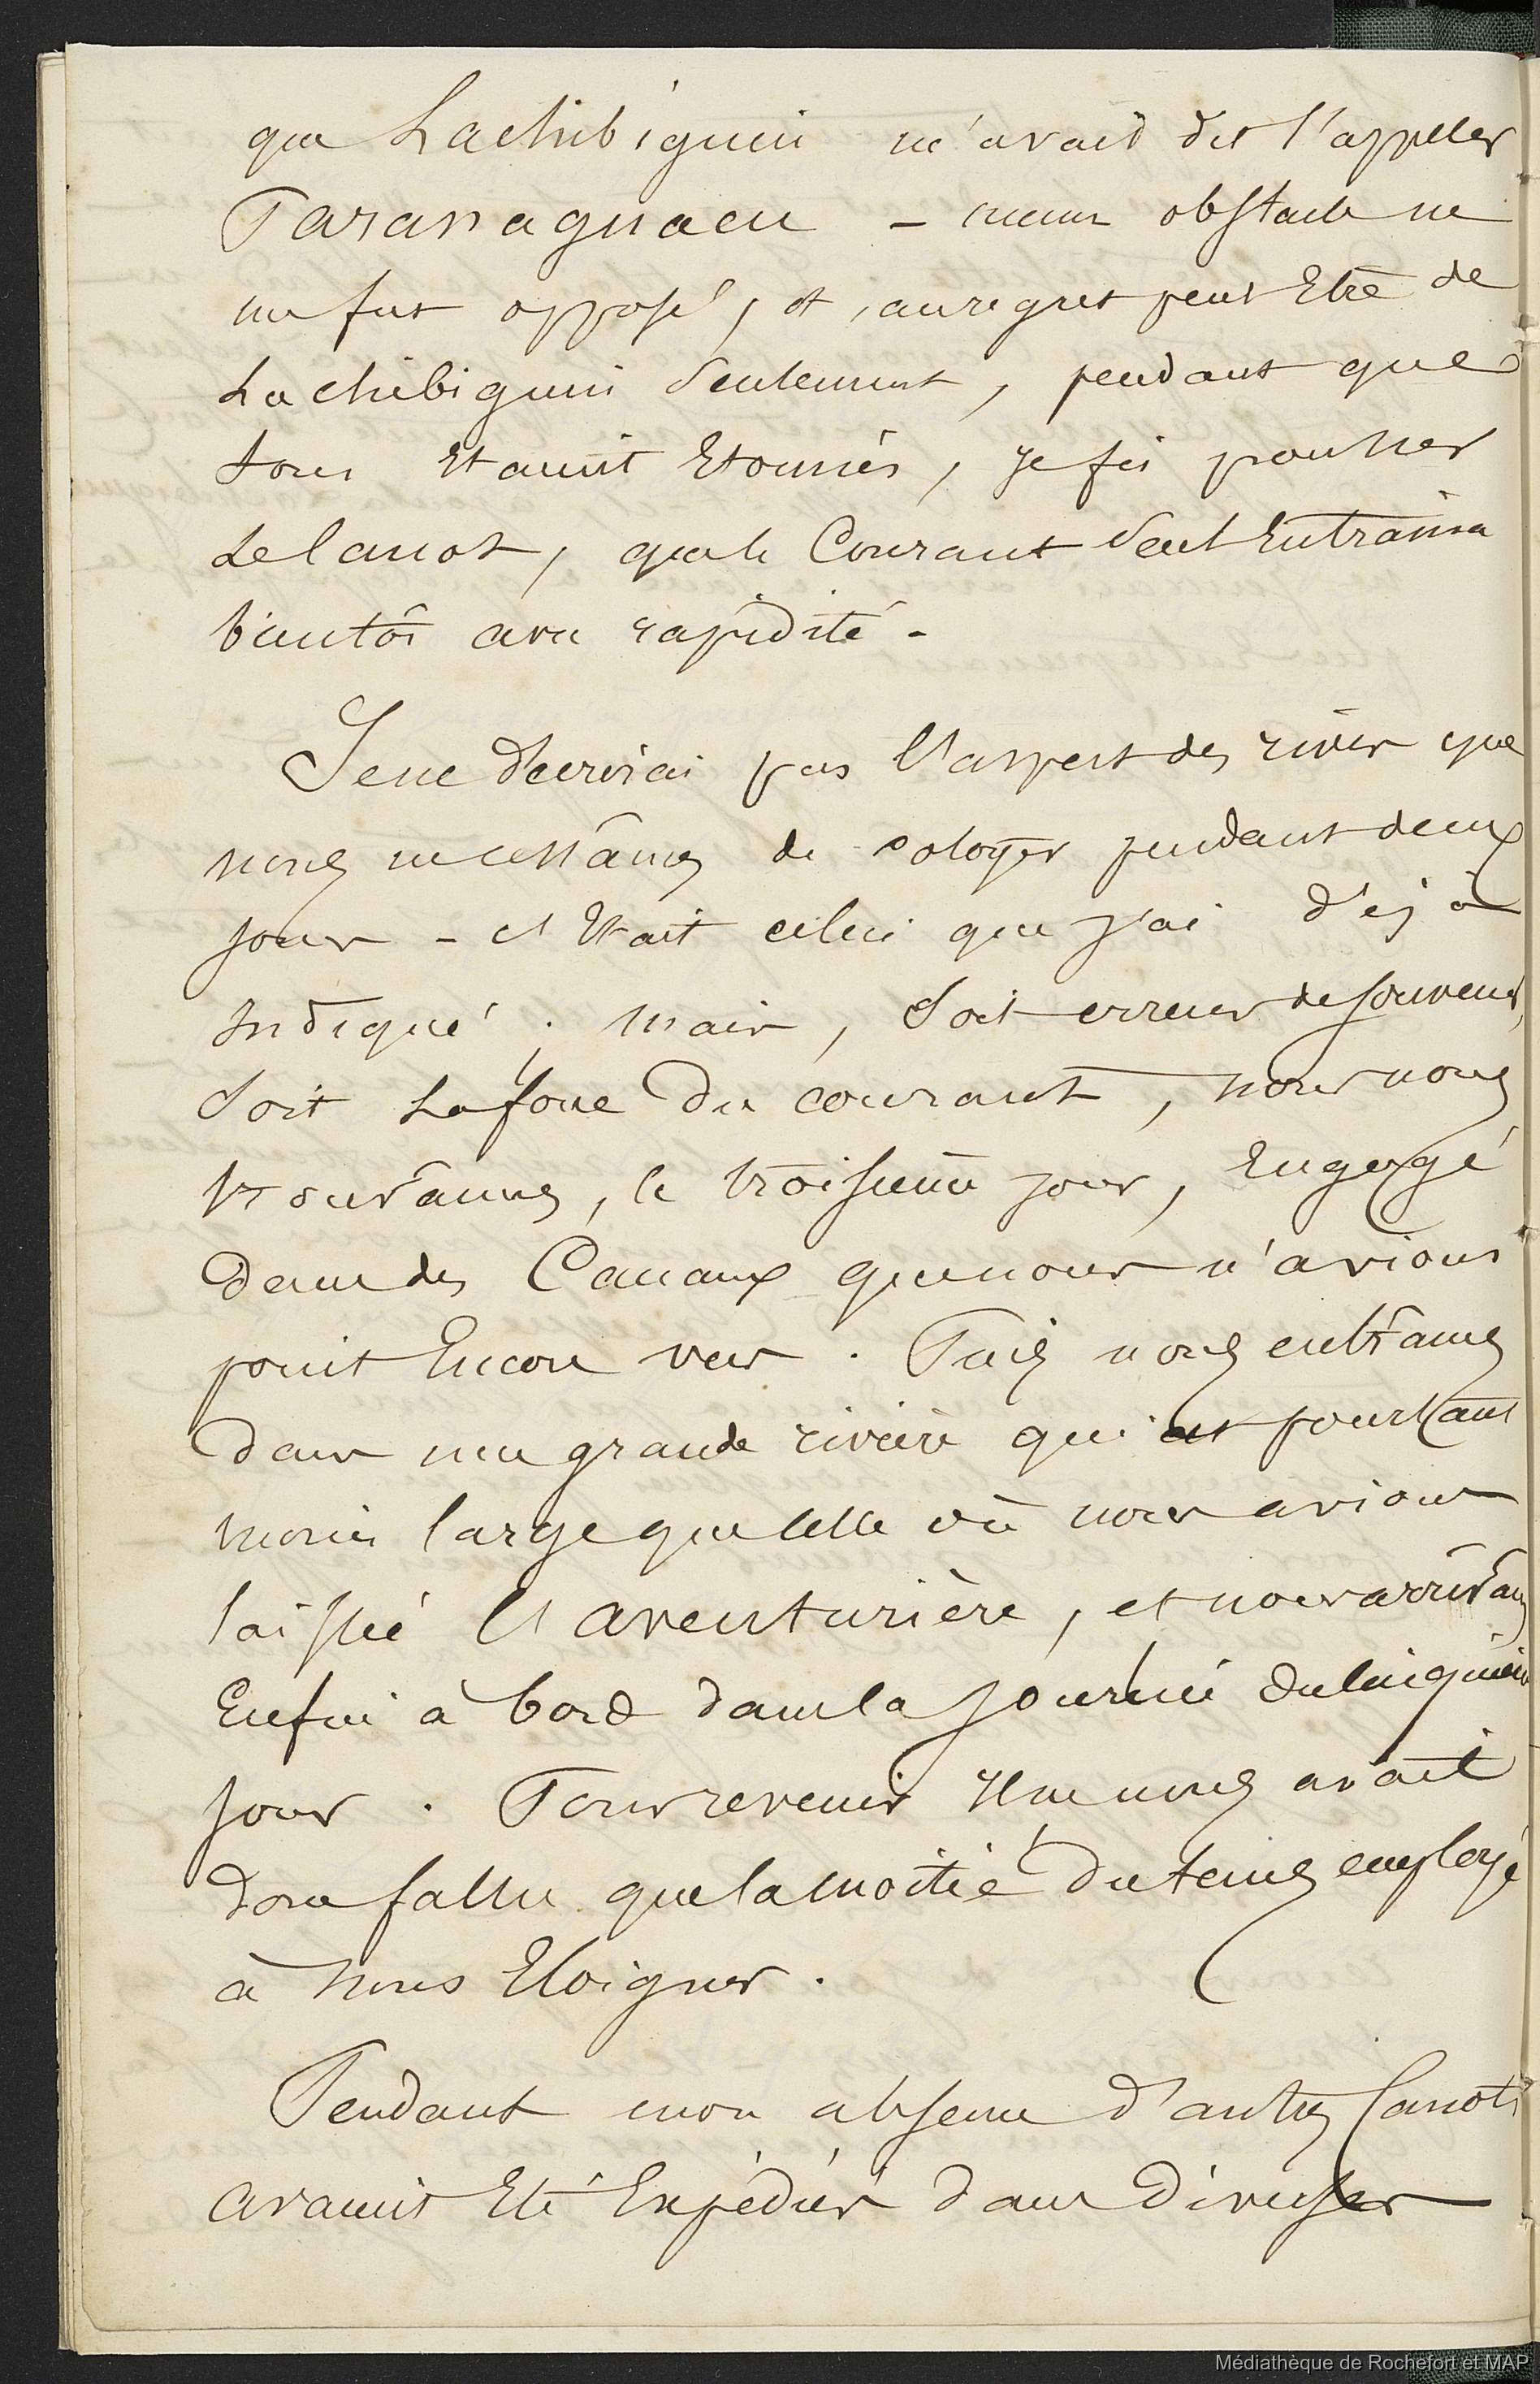 que Lachibiguin m'avait dit s'appeler
Paranaguacu - aucun obstacle ne
me fut opposé, et, au regret peut Etre de
Lachibiguin Seulement, pendant que
tous Etaient Etonnés, je fis pousser
Le Canot, que le Courant Seul Entraina
bientôt avec rapidité -
Je ne décrirai pas l'aspect des rives que
nous ne cessâmes de cotoyer pendant deux
jours - c'Etait celui que j'ai déjà
Indiqué ; mais, Soit erreur de souvenir,
Soit La force du courant, nous nous
trouvâmes, le troisième jour, Engagé
dans des Canaux que nous n'avions
point Encore vus . Puis nous entrâmes
dans une grande rivière qui est pourtant
moins large que celle où nous avions
laissé l'aventurière, et nous arrivâmes
Enfin à bord dans la journée du cinquième
jour . Pour revenir Il ne nous avait
donc fallu que la moitié du tems employé
à nous Eloigner .
Pendant mon absence d'autres Canots
avaient Eté Expédiés dans diverses
Médiathèque de Rochefort et MAP